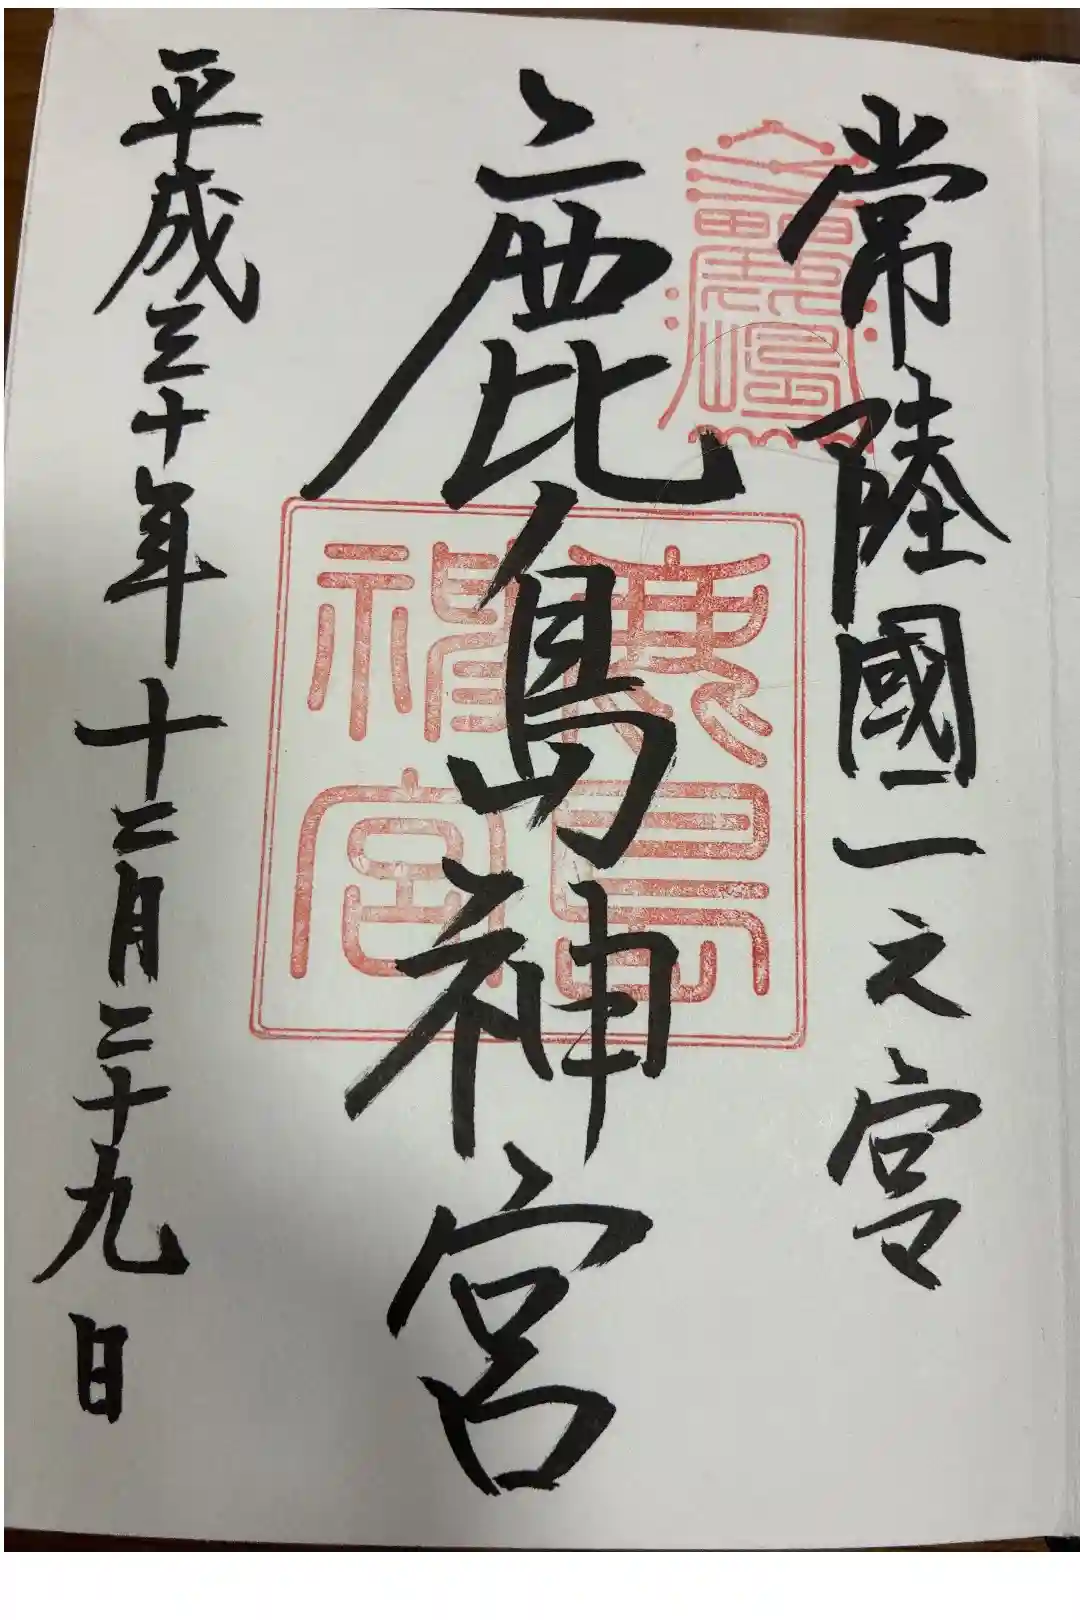 常陸國一之宮
鹿島神宮
平成三十年十二月二十九日
鹿島神宮